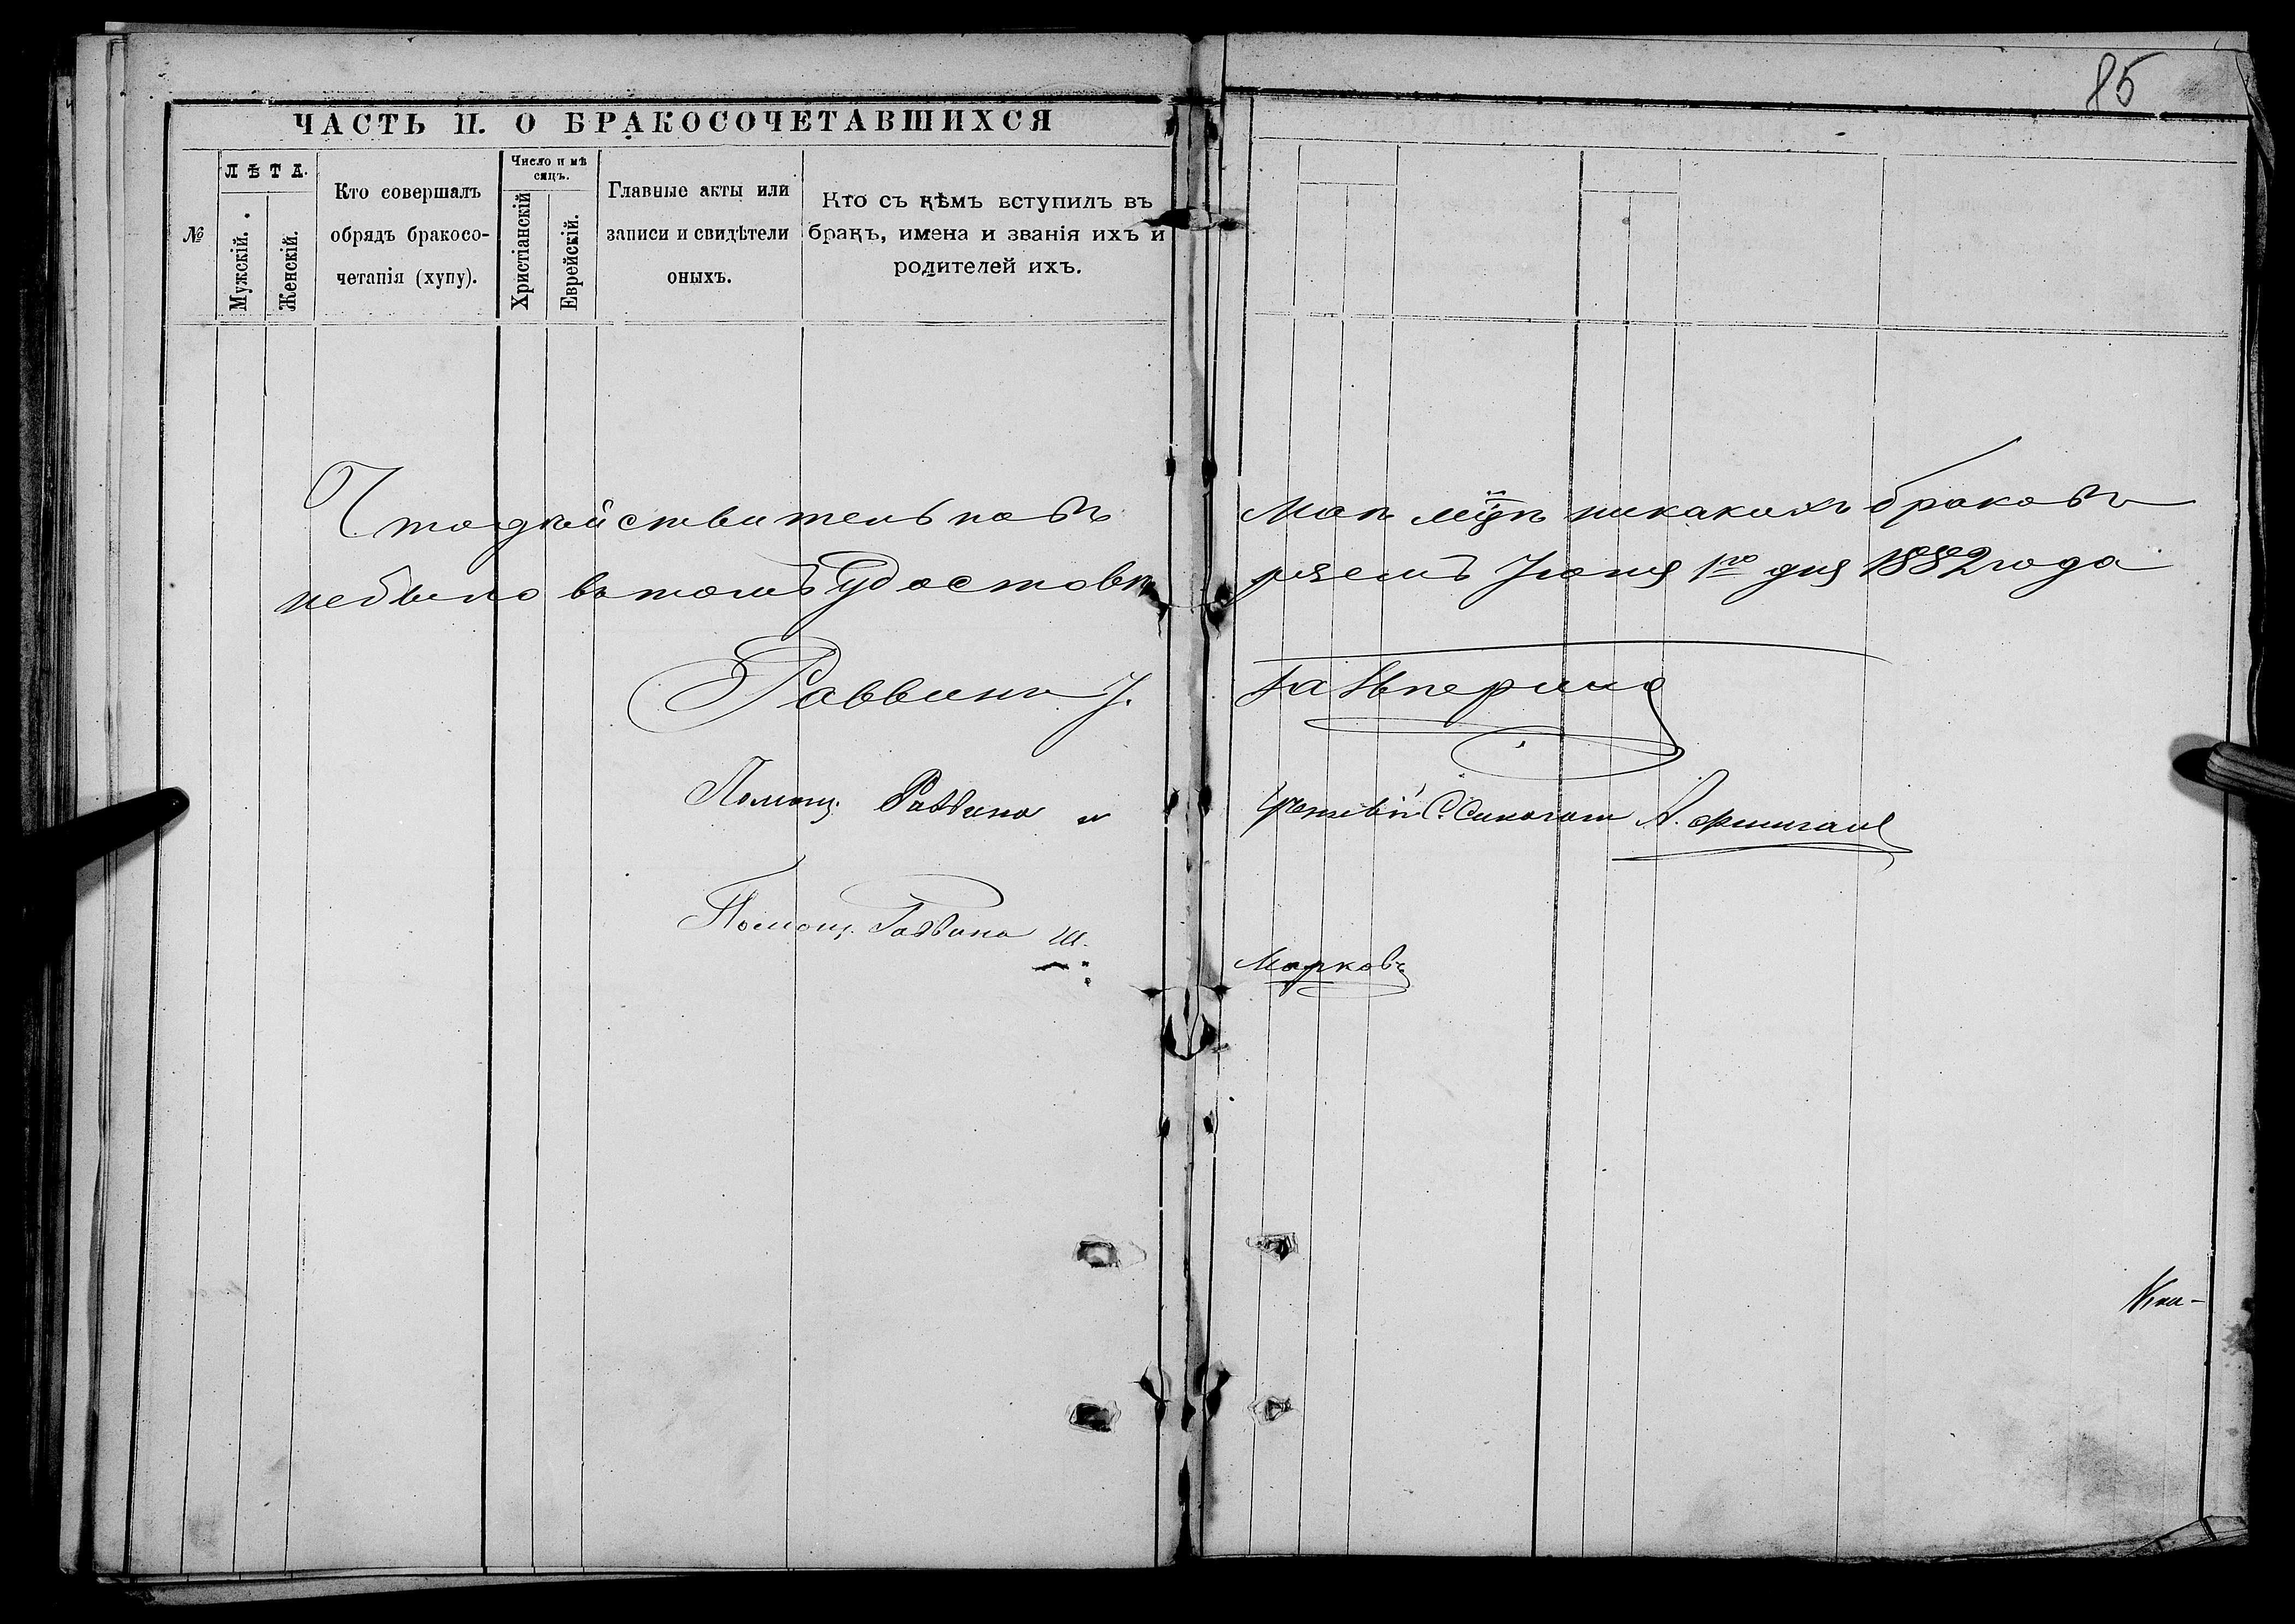 85
ЧАСТЬ II. О БРАКОСОЧЕТАВШИХСЯ
№
ЛѢТА.
Мужскій.
Женскій.
Кто совершалъ
обрядъ бракосо-
четанія (хупу).
Число и мѣ
сяцъ.
Христіанскій
Еврейскій.
Главные акты или
записи и свидѣтели
оныхъ.
Кто съ кѣмъ вступилъ въ
бракъ, имена и званія ихъ и
родителей ихъ.
Что действительно въ Маѣ м҃цѣ никакихъ браковъ
небыло въ томъ Удостовѣряемъ Іюня 1го дня 1882 года
Раввинъ І. Гальперинъ
Помощ. Раввина и С. Синагоги А.
Помощ. Раввина Ш. Марковъ